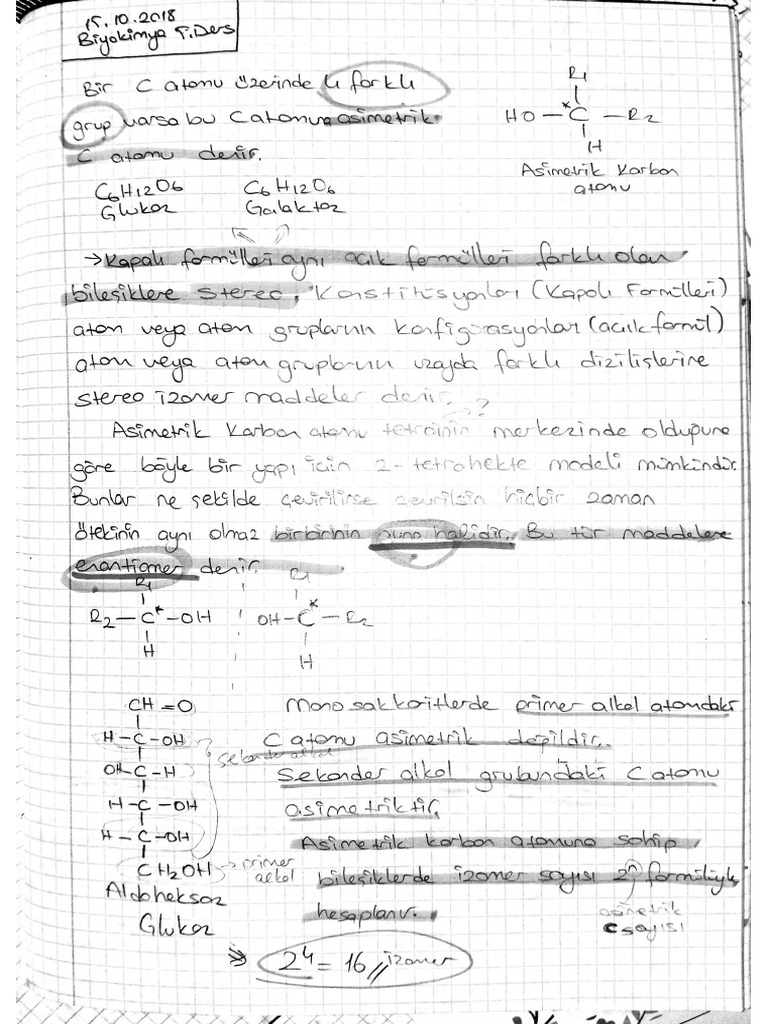 15.10.2018
Biyokimya T.Ders
Bir C atomu üzerinde 4 farklı
grup varsa bu C atomuna asimetrik
C atomu denir.
R1
HO – C* – R2
H
Asimetrik Karbon
atomu
C6H12O6 C6H12O6
Glukoz Galaktoz
→ Kapalı formülleri aynı açık formülleri farklı olan
bileşiklere stereo. Konstitisyonları (Kapalı Formülleri)
atom veya atom gruplarının konfigürasyonları (açık formül)
atom veya atom gruplarının uzayda farklı dizilişlerine
stereo izomer maddeler denir. ?
Asimetrik Karbon atomu merkezinde olduğuna
göre böyle bir yapı için 2- modeli mümkündür.
Bunlar ne şekilde çevirilirse çevrilsin hiçbir zaman
ötekinin aynı olmaz birbirinin ayna halidir. Bu tür maddelere
enantiomer denir.
R1 R1
R2 – C* – OH OH – C* – R2
H H
CH = O
H – C – OH
OH – C – H
H – C – OH
H – C – OH
CH2OH → primer
alkol
sekonder alkol
Aldoheksoz
Glukoz
Monosakkaritlerde primer alkol atomdaki
C atomu asimetrik değildir.
Sekonder alkol grubundaki C atomu
asimetriktir.
Asimetrik karbon atomuna sahip
bileşiklerde izomer sayısı 2ⁿ formülüyle
hesaplanır.
asimetrik
C sayısı
2⁴ = 16 // izomer